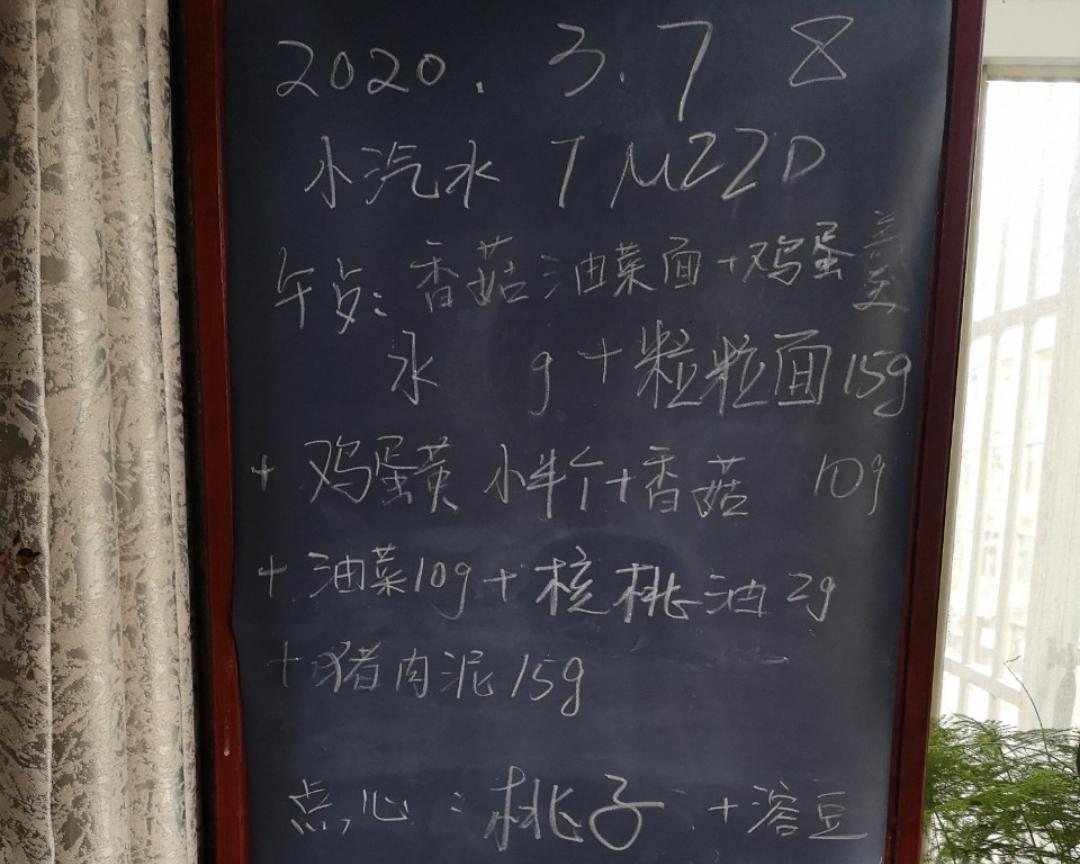 2020.3.7 8
小汽水 7M22D
午点:香菇油菜面+鸡蛋羹
水 g+粒粒面15g
+鸡蛋黄 小半个+香菇 10g
+油菜10g+核桃油2g
+猪肉泥15g
点心:桃子+溶豆